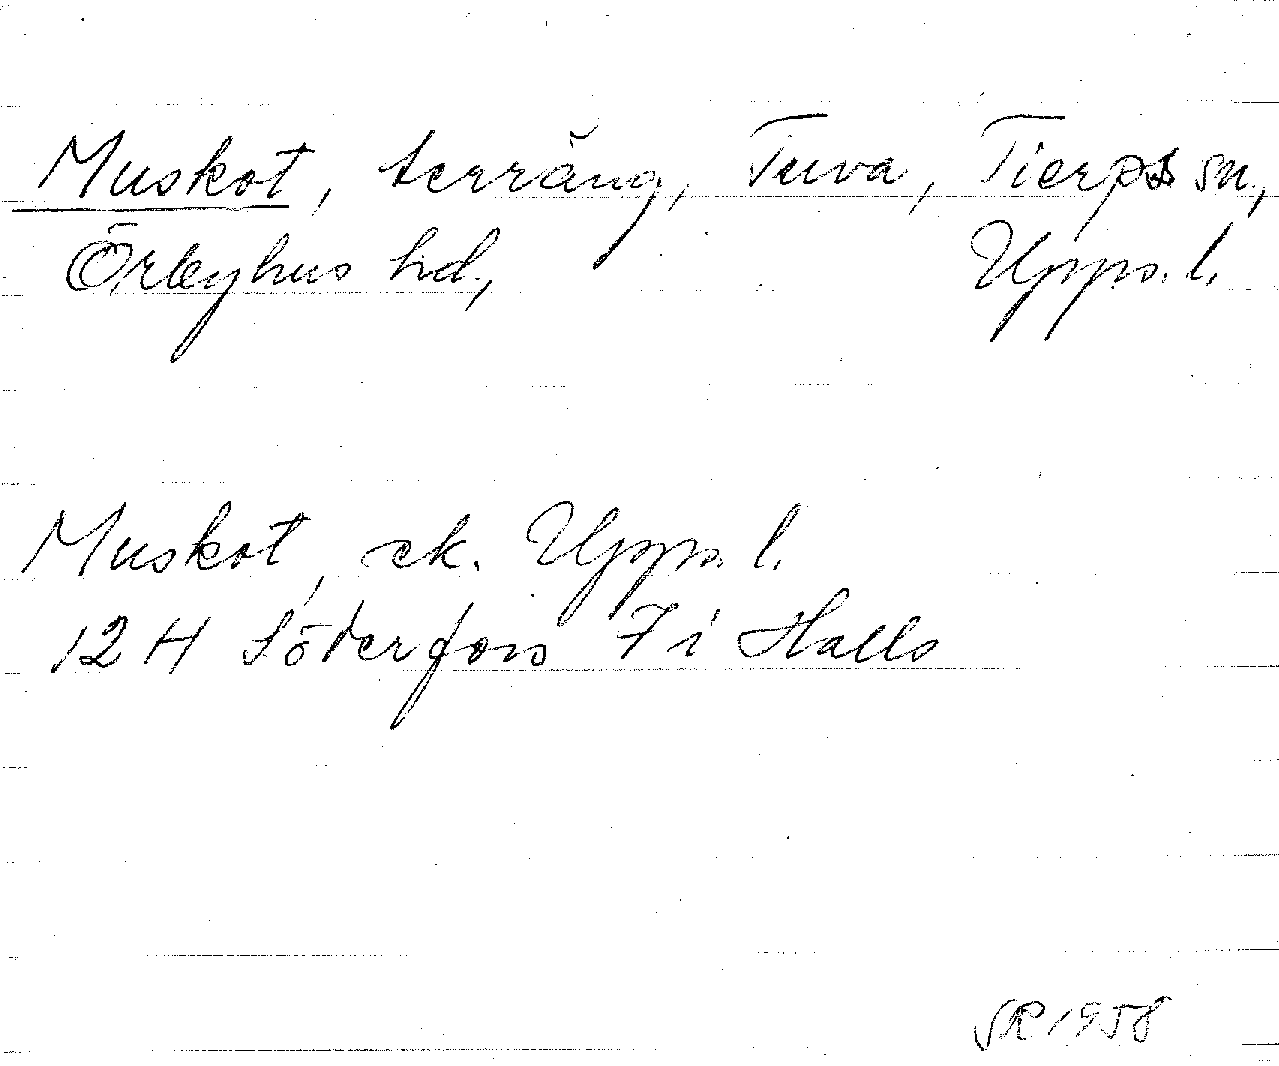 Muskot, terräng, Tuva, Tierps sn,
Örbyhus hd, Upps. l.
Muskot, ek. Upps. l.
12 H Söderfors 7 i Halls
SR 1958